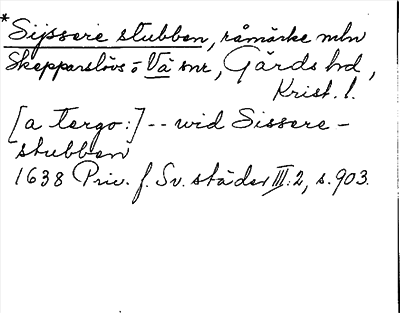 *Sijssere stubben, råmärke mln
Skepparslövs o Vä snr, Gärds hd,
Krist. l.
[a tergo:] -- wid Sissere-
stubben
1638 Priv. f. Sv. städer III:2, s. 903.